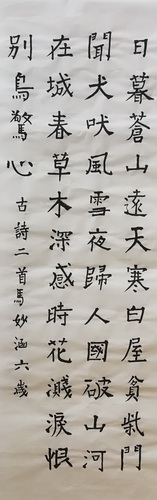 日暮蒼山遠天寒白屋貧柴門
聞犬吠風雪夜歸人國破山河
在城春草木深感時花濺淚恨
別鳥驚心
古詩二首馬妙涵六歲